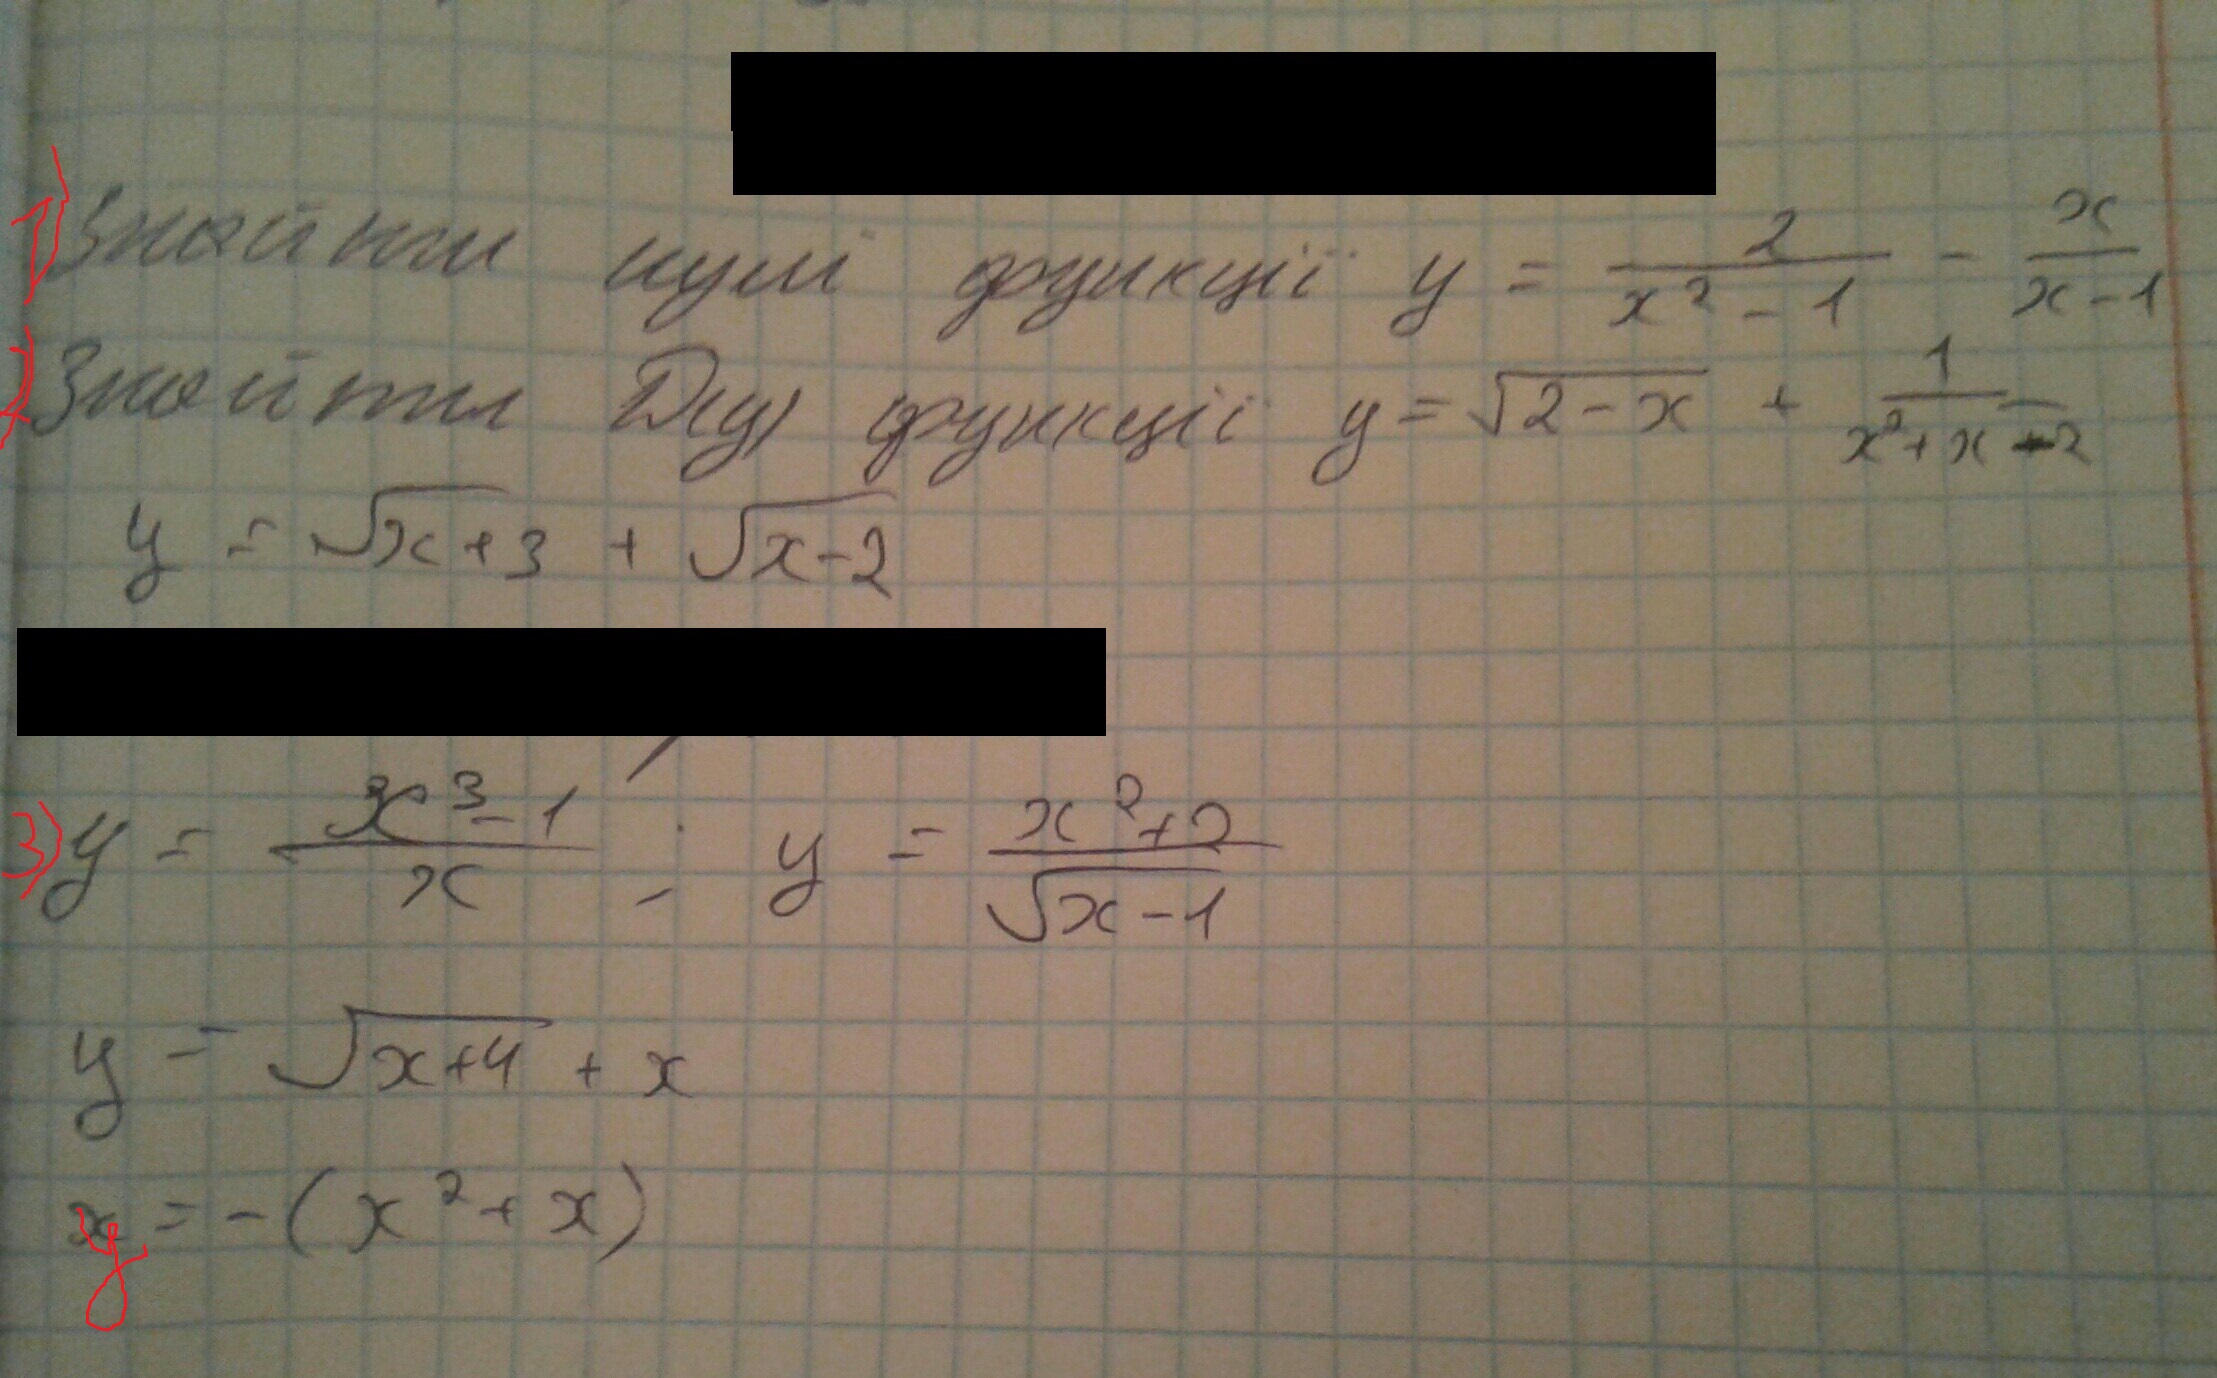 1) Знайти нулі функції y = 2/(x² - 1) - x/(x - 1)
2) Знайти D(y) функції y = √(2 - x) + 1/(x² + x - 2)
y = √(x+3) + √(x-2)
3) y = (x³ - 1)/x ; y = (x² + 2)/√(x - 1)
y = √(x+4) + x
y = -(x² + x)